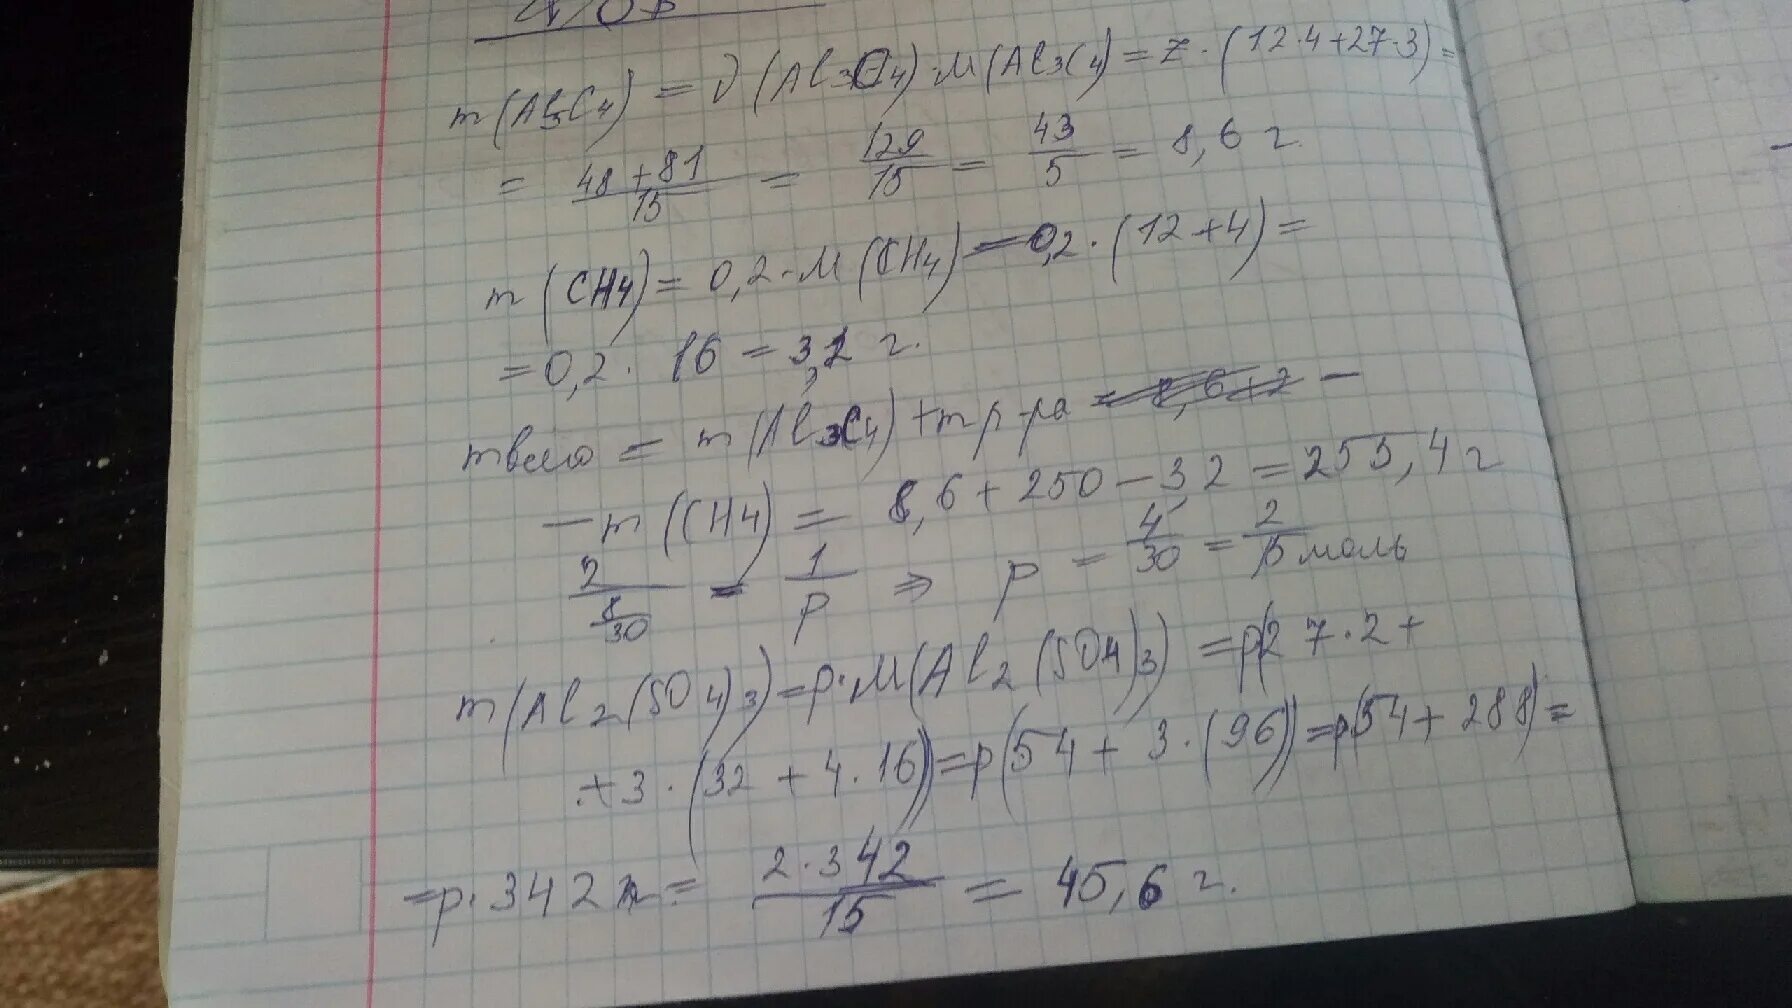 m(Al3C4) = ν(Al3C4)·M(Al3C4) = z·(12·4+27·3) =
= 48+81/15 = 129/15 = 43/5 = 8,6 г.
m(CH4) = 0,2·M(CH4) = 0,2·(12+4) =
= 0,2·16 = 3,2 г.
m(Al3C4) + m р-ра = 8,6+2 —
— m(CH4) = 8,6 + 250 — 3,2 = 255,4 г
2/(8/30) = 1/p ⇒ p = 4/30 = 2/15 моль
m(Al2(SO4)3) = p·M(Al2(SO4)3) = p(27·2+
+3·(32+4·16)) = p(54+3·(96)) = p(54+288) =
= p·342 = 2·342/15 = 45,6 г.